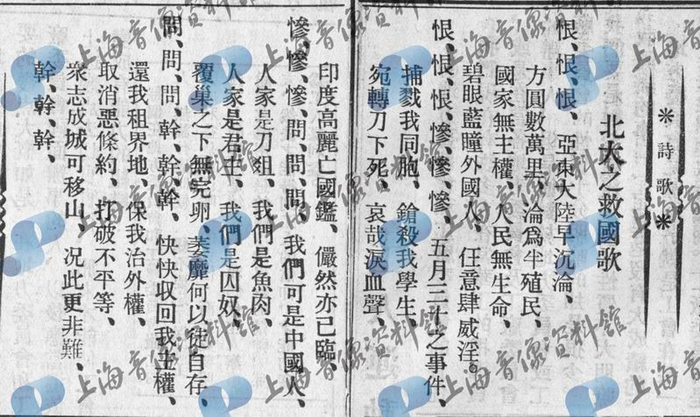 ＊詩歌＊
北大之救國歌
恨、恨、恨、亞東大陸早沉淪、
方圓數萬里、淪爲半殖民、
國家無主權、人民無生命、
碧眼藍瞳外國人、任意肆威淫。
恨、恨、恨、慘、慘、慘、五月三十之事件、
捕戮我同胞、鎗殺我學生、
宛轉刀下死、哀哉淚血聲、
印度高麗亡國鑑、儼然亦已臨、
慘、慘、慘、問、問、問、我們可是中國人、
人家是刀俎、我們是魚肉、
人家是君主、我們是囚奴、
覆巢之下無完卵、萎靡何以徒自存、
問、問、問、幹、幹、幹、快快収回我主權、
還我租界地、保我治外權、
取消惡條約、打破不平等、
衆志成城可移山、況此更非難、
幹、幹、幹、
上海音像资料館